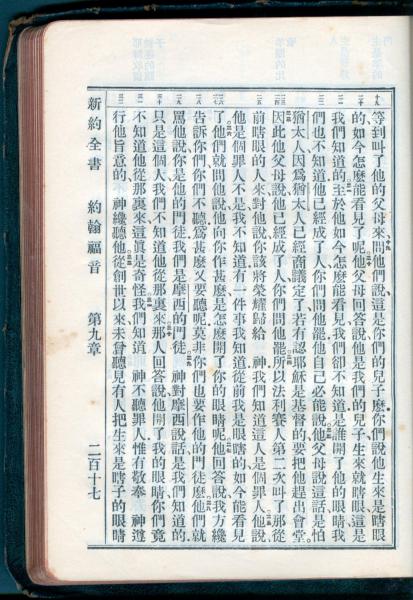 等到叫了他的父母來問他們說這是你們的兒子麼你們說他生來是瞎眼
的如今怎麼能看見了呢他父母回答說他是我們的兒子生來就瞎眼這是
我們知道的至於他如今怎麼能看見我們卻不知道是誰開了他的眼睛我
們也不知道他已經成了人你們問他罷他自己必能說他父母說這話是怕
猶太人因爲猶太人已經商議定了若有認耶穌是基督的要把他趕出會堂
因此他父母說他已經成了人你們問他罷所以法利賽人第二次叫了那從
前瞎眼的人來對他說你該將榮耀歸給 神我們知道這人是個罪人他說
他是個罪人不是我不知道有一件事我知道從前我是眼瞎的如今能看見
了他們就問他說他向你作甚麼是怎麼開了你的眼睛呢他回答說我方纔
告訴你們你們不聽爲甚麼又要聽呢莫非你們也要作他的門徒麼他們就
罵他說你是他的門徒我們是摩西的門徒 神對摩西說話是我們知道的
只是這個人我們不知道他從那裏來那人回答說他開了我的眼睛你們竟
不知道他從那裏來這眞是奇怪我們知道 神不聽罪人惟有敬奉 神遵
行他旨意的 神纔聽他從創世以來未曾聽見有人把生來是瞎子的眼睛
新約全書 約翰福音 第九章 二百十七